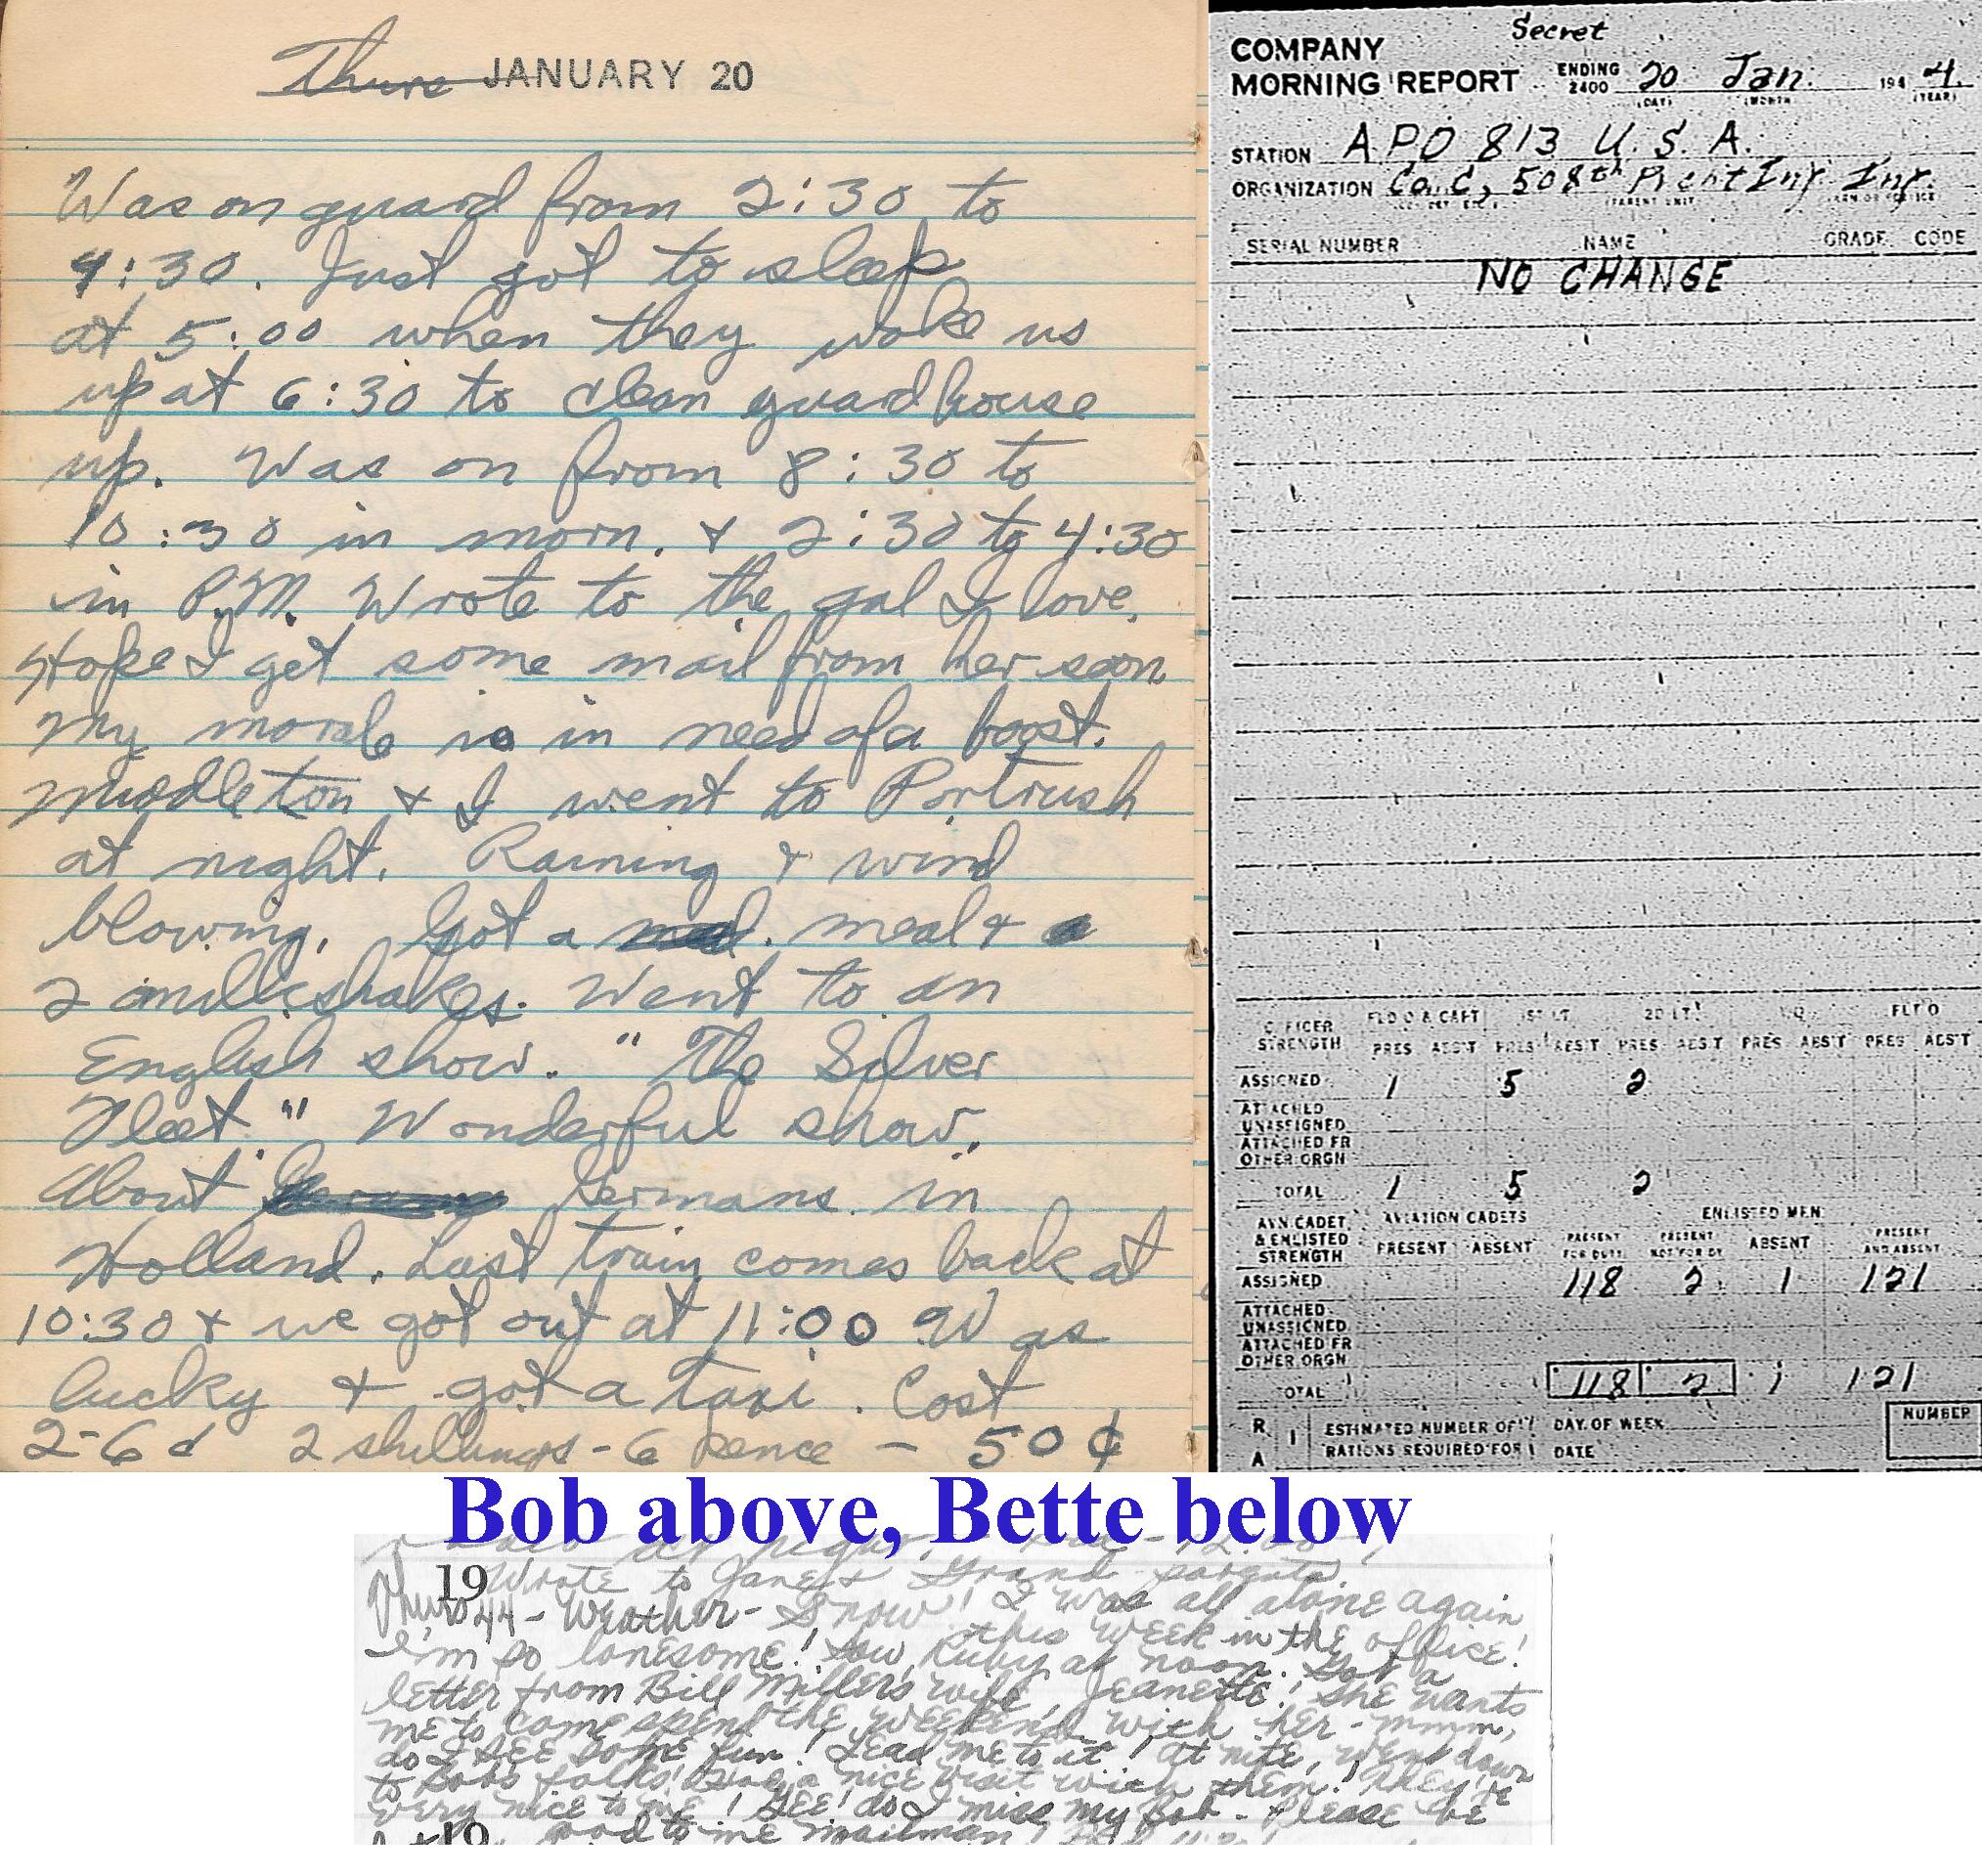 Thurs JANUARY 20
Was on guard from 2:30 to
4:30. Just got to sleep
at 5:00 when they woke us
up at 6:30 to clean guard house
up. Was on from 8:30 to
10:30 in morn. & 2:30 to 4:30
in P.M. Wrote to the gal I love.
Hope I get some mail from her soon
My morale is in need of a boost.
Middleton & I went to Portrush
at night. Raining & wind
blowing. Got a meal & 
2 milkshakes. Went to an
English show. "The Silver
Fleet." Wonderful show.
About Germans in
Holland. Last train comes back at
10:30 & we got out at 11:00 Was
lucky & got a taxi. Cost
2-6d 2 shillings - 6 pence - 50¢
Secret
COMPANY
MORNING REPORT ENDING 2400 20 Jan. 194 4
(DAY) (MONTH) (YEAR)
STATION APO 813 U.S.A.
ORGANIZATION Co. C, 508th Prcht Inf. Inf.
SERIAL NUMBER NAME GRADE CODE
NO CHANGE
OFFICER STRENGTH FLD O & CAPT 1ST LT 2D LT WO FLT O
PRES ABST PRES ABST PRES ABST PRES ABST PRES ABST
ASSIGNED 1 5 2
ATTACHED
UNASSIGNED
ATTACHED FR
OTHER ORGN
TOTAL 1 5 2
AVN CADET & ENLISTED STRENGTH AVIATION CADETS ENLISTED MEN
PRESENT ABSENT PRESENT FOR DUTY PRESENT NOT FOR DY ABSENT PRESENT AND ABSENT
ASSIGNED 118 2 1 121
ATTACHED
UNASSIGNED
ATTACHED FR
OTHER ORGN
TOTAL 118 2 1 121
R A 1 ESTIMATED NUMBER OF RATIONS REQUIRED FOR DAY OF WEEK DATE NUMBER
Bob above, Bette below
Wrote to Jane & Grand parents
19
Thurs 44 - Weather - Snow! I was all alone again
this week in the office!
I'm so lonesome! Saw Ruby at noon. Got a
letter from Bill Miller's wife, Jeanette! She wants
me to come spend the weekend with her - mmm,
do I see some fun! Lead me to it! At nite, went down
to Bob's folks! Had a nice visit with them! They're
very nice to me! GEE! do I miss my Bob - Please be
good to me mailman!
19